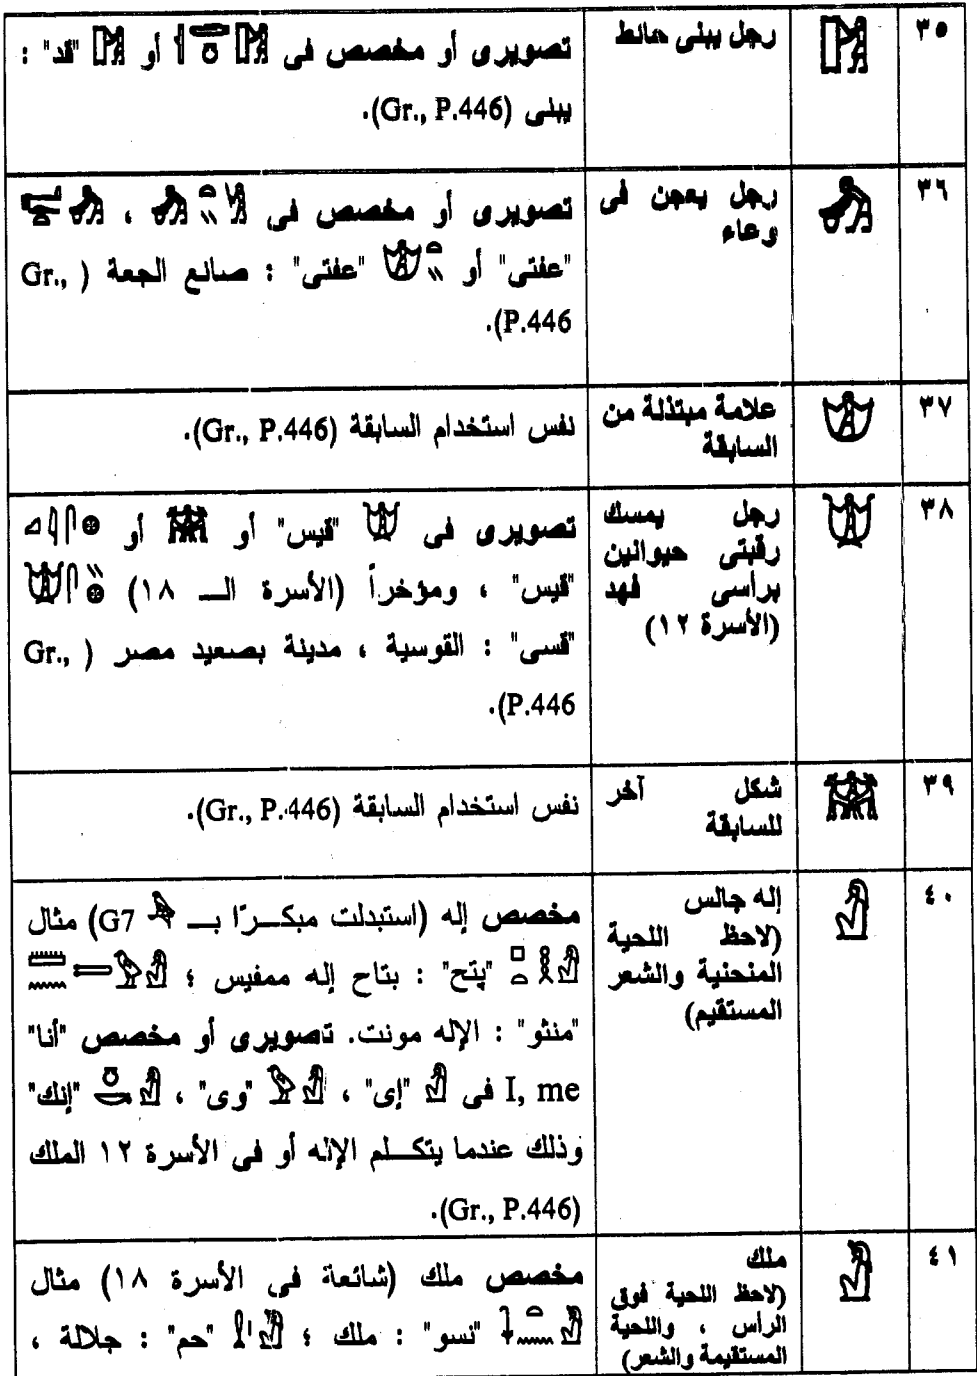 ٣٥
رجل يبنى حائط
تصويرى أو مخصص فى أو "قد" :
يبنى (Gr., P.446).
٣٦
رجل يعجن فى
وعاء
تصويرى أو مخصص فى ،
"عفتى" أو "عفتى" : صانع الجعة (Gr.,
P.446).
٣٧
علامة مبتذلة من
السابقة
نفس استخدام السابقة (Gr., P.446).
٣٨
رجل يمسك
رقبتى حيوانين
برأسى فهد
(الأسرة ١٢)
تصويرى فى "قيس" أو أو
"قيس" ، ومؤخراً (الأسرة الـ ١٨)
"قسى" : القوسية ، مدينة بصعيد مصر (Gr.,
P.446).
٣٩
شكل آخر
للسابقة
نفس استخدام السابقة (Gr., P.446).
٤٠
إله جالس
(لاحظ اللحية
المنحنية والشعر
المستقيم)
مخصص إله (استبدلت مبكرًا بـ G7) مثال
"پتح" : بتاح إله ممفيس ؛
"منثو" : الإله مونت. تصويرى أو مخصص "أنا"
I, me فى "إى" ، "وى" ، "إنك"
وذلك عندما يتكلم الإله أو فى الأسرة ١٢ الملك
(Gr., P.446).
٤١
ملك
(لاحظ اللحية فوق
الرأس ، واللحية
المستقيمة والشعر)
مخصص ملك (شائعة فى الأسرة ١٨) مثال
"نسو" : ملك ؛ "حم" : جلالة ،